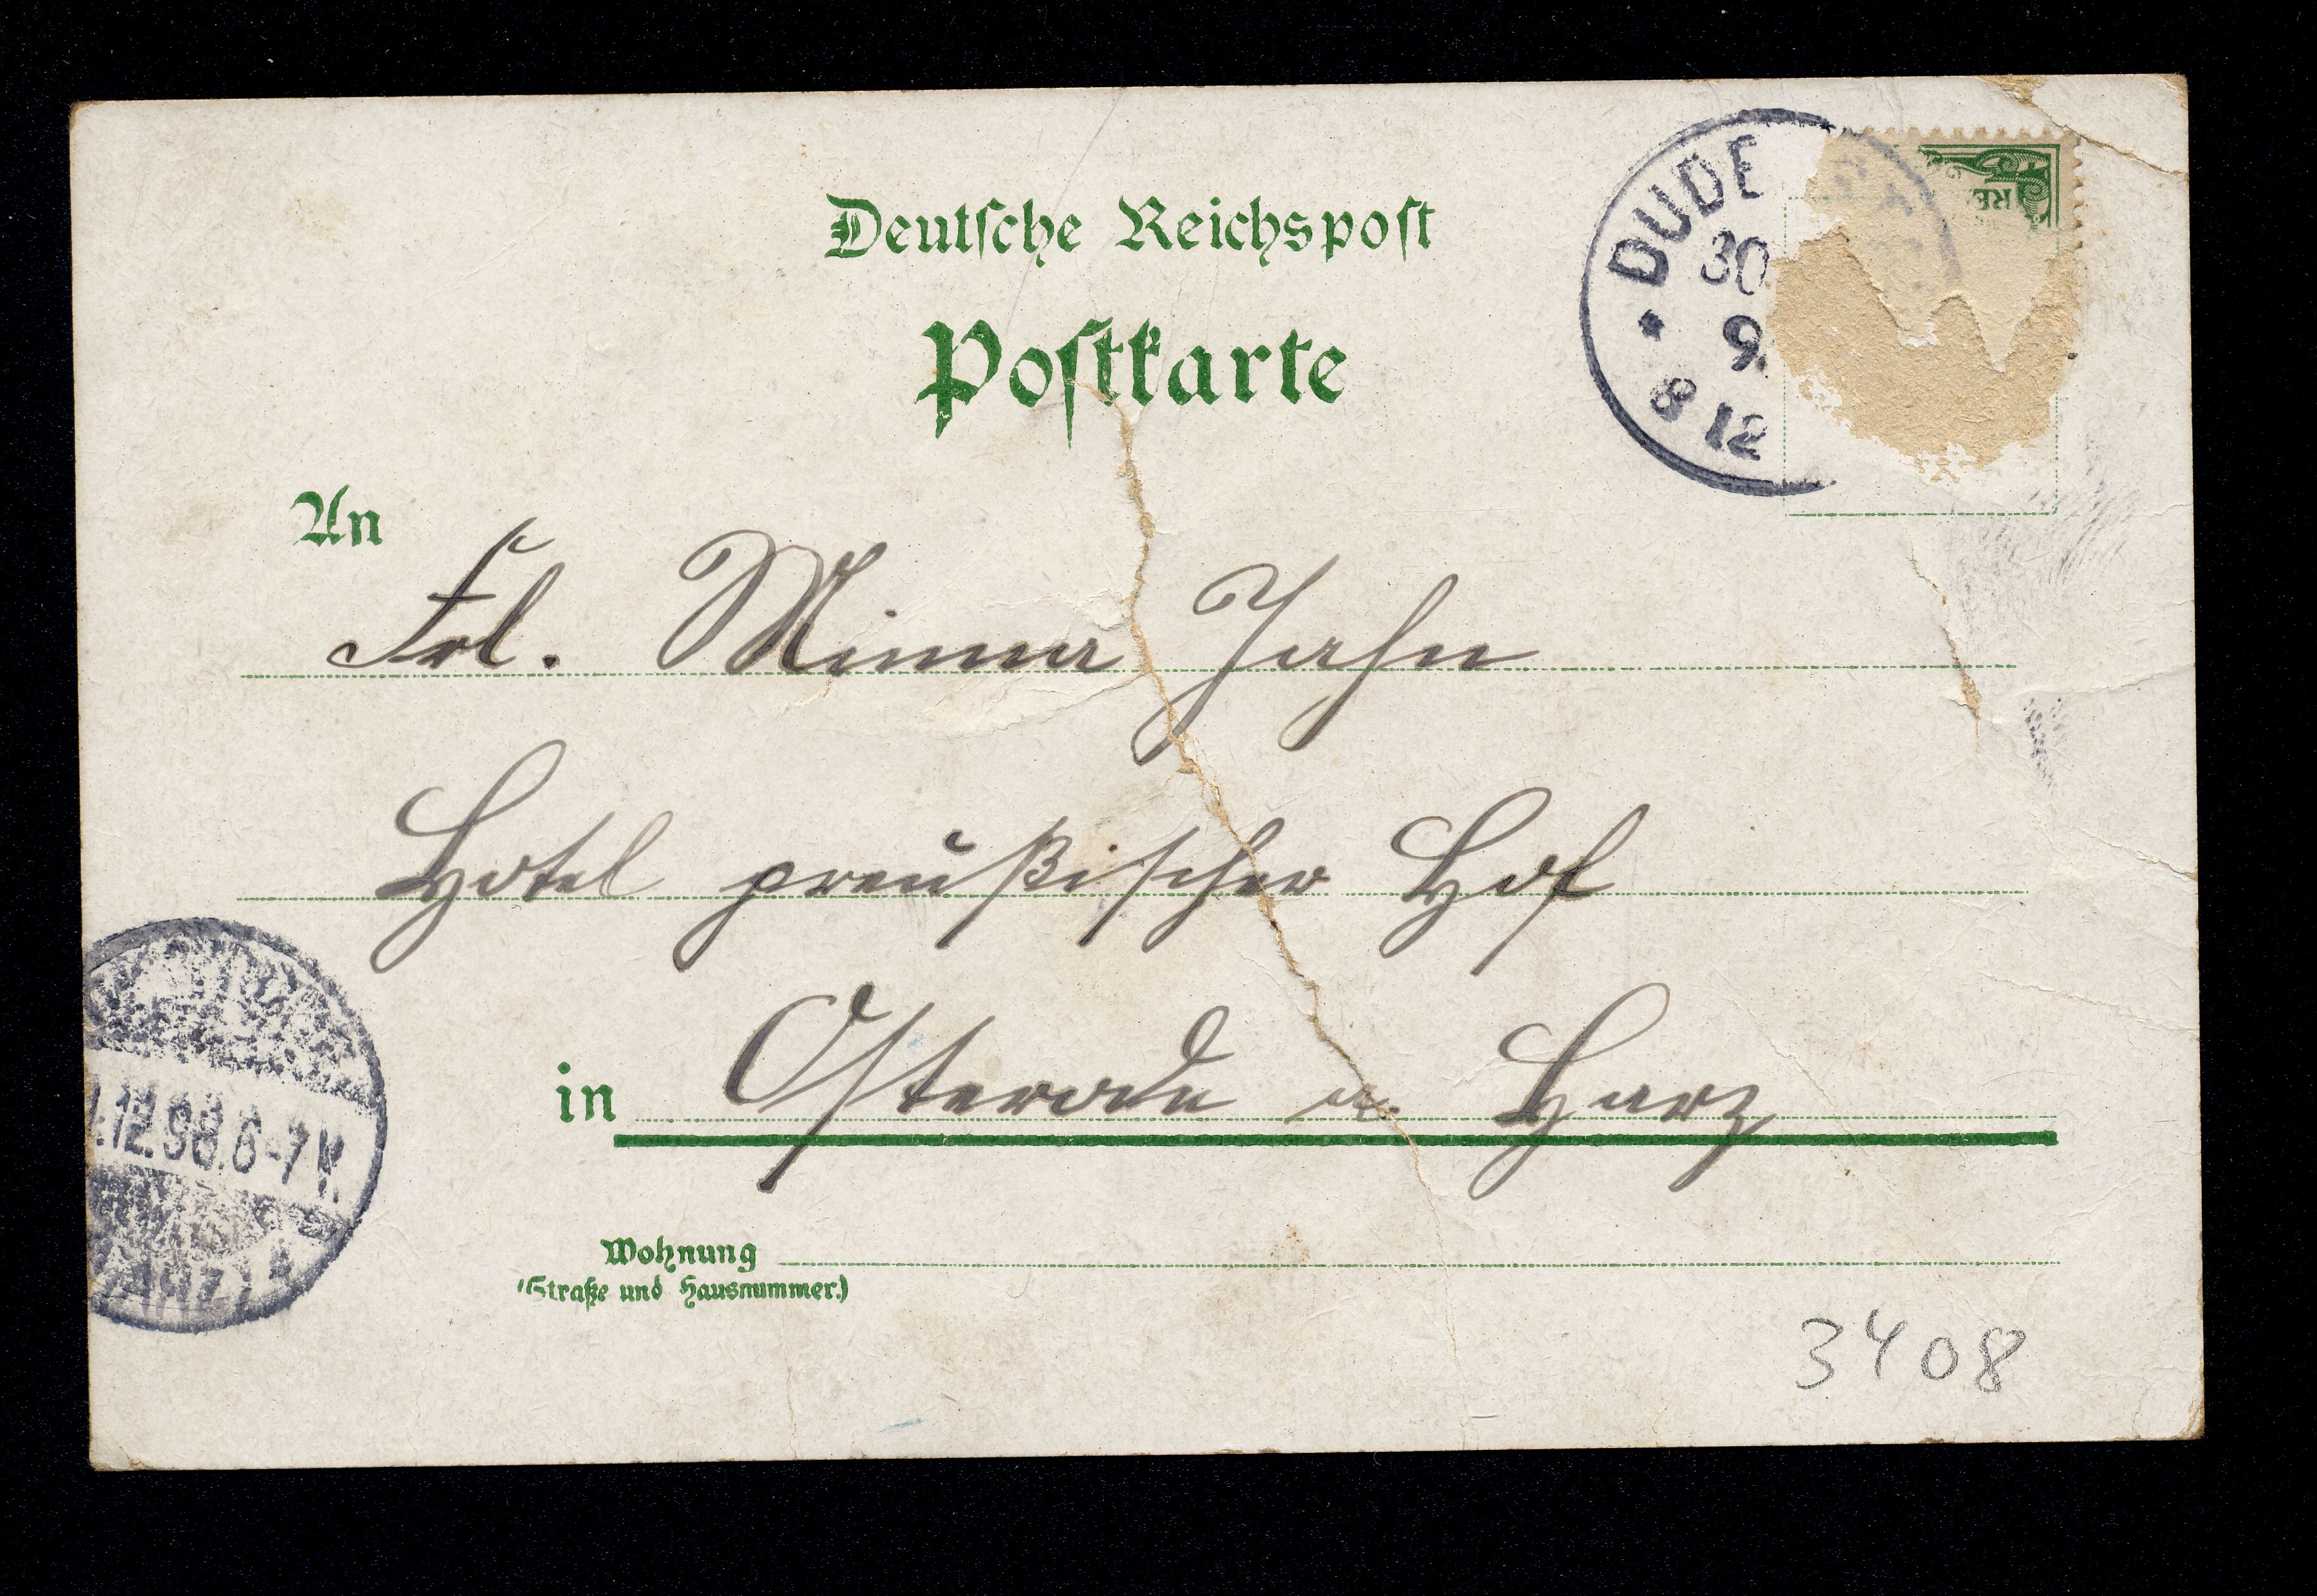 Deutsche Reichspost
Postkarte
DUDE
30
9.
8 12
RE
An
Frl. Minna Jahn
Hotel preußischer Hof
in Osterode a. Harz
.12.98.6-7 V.
Wohnung
(Straße und Hausnummer.)
3408